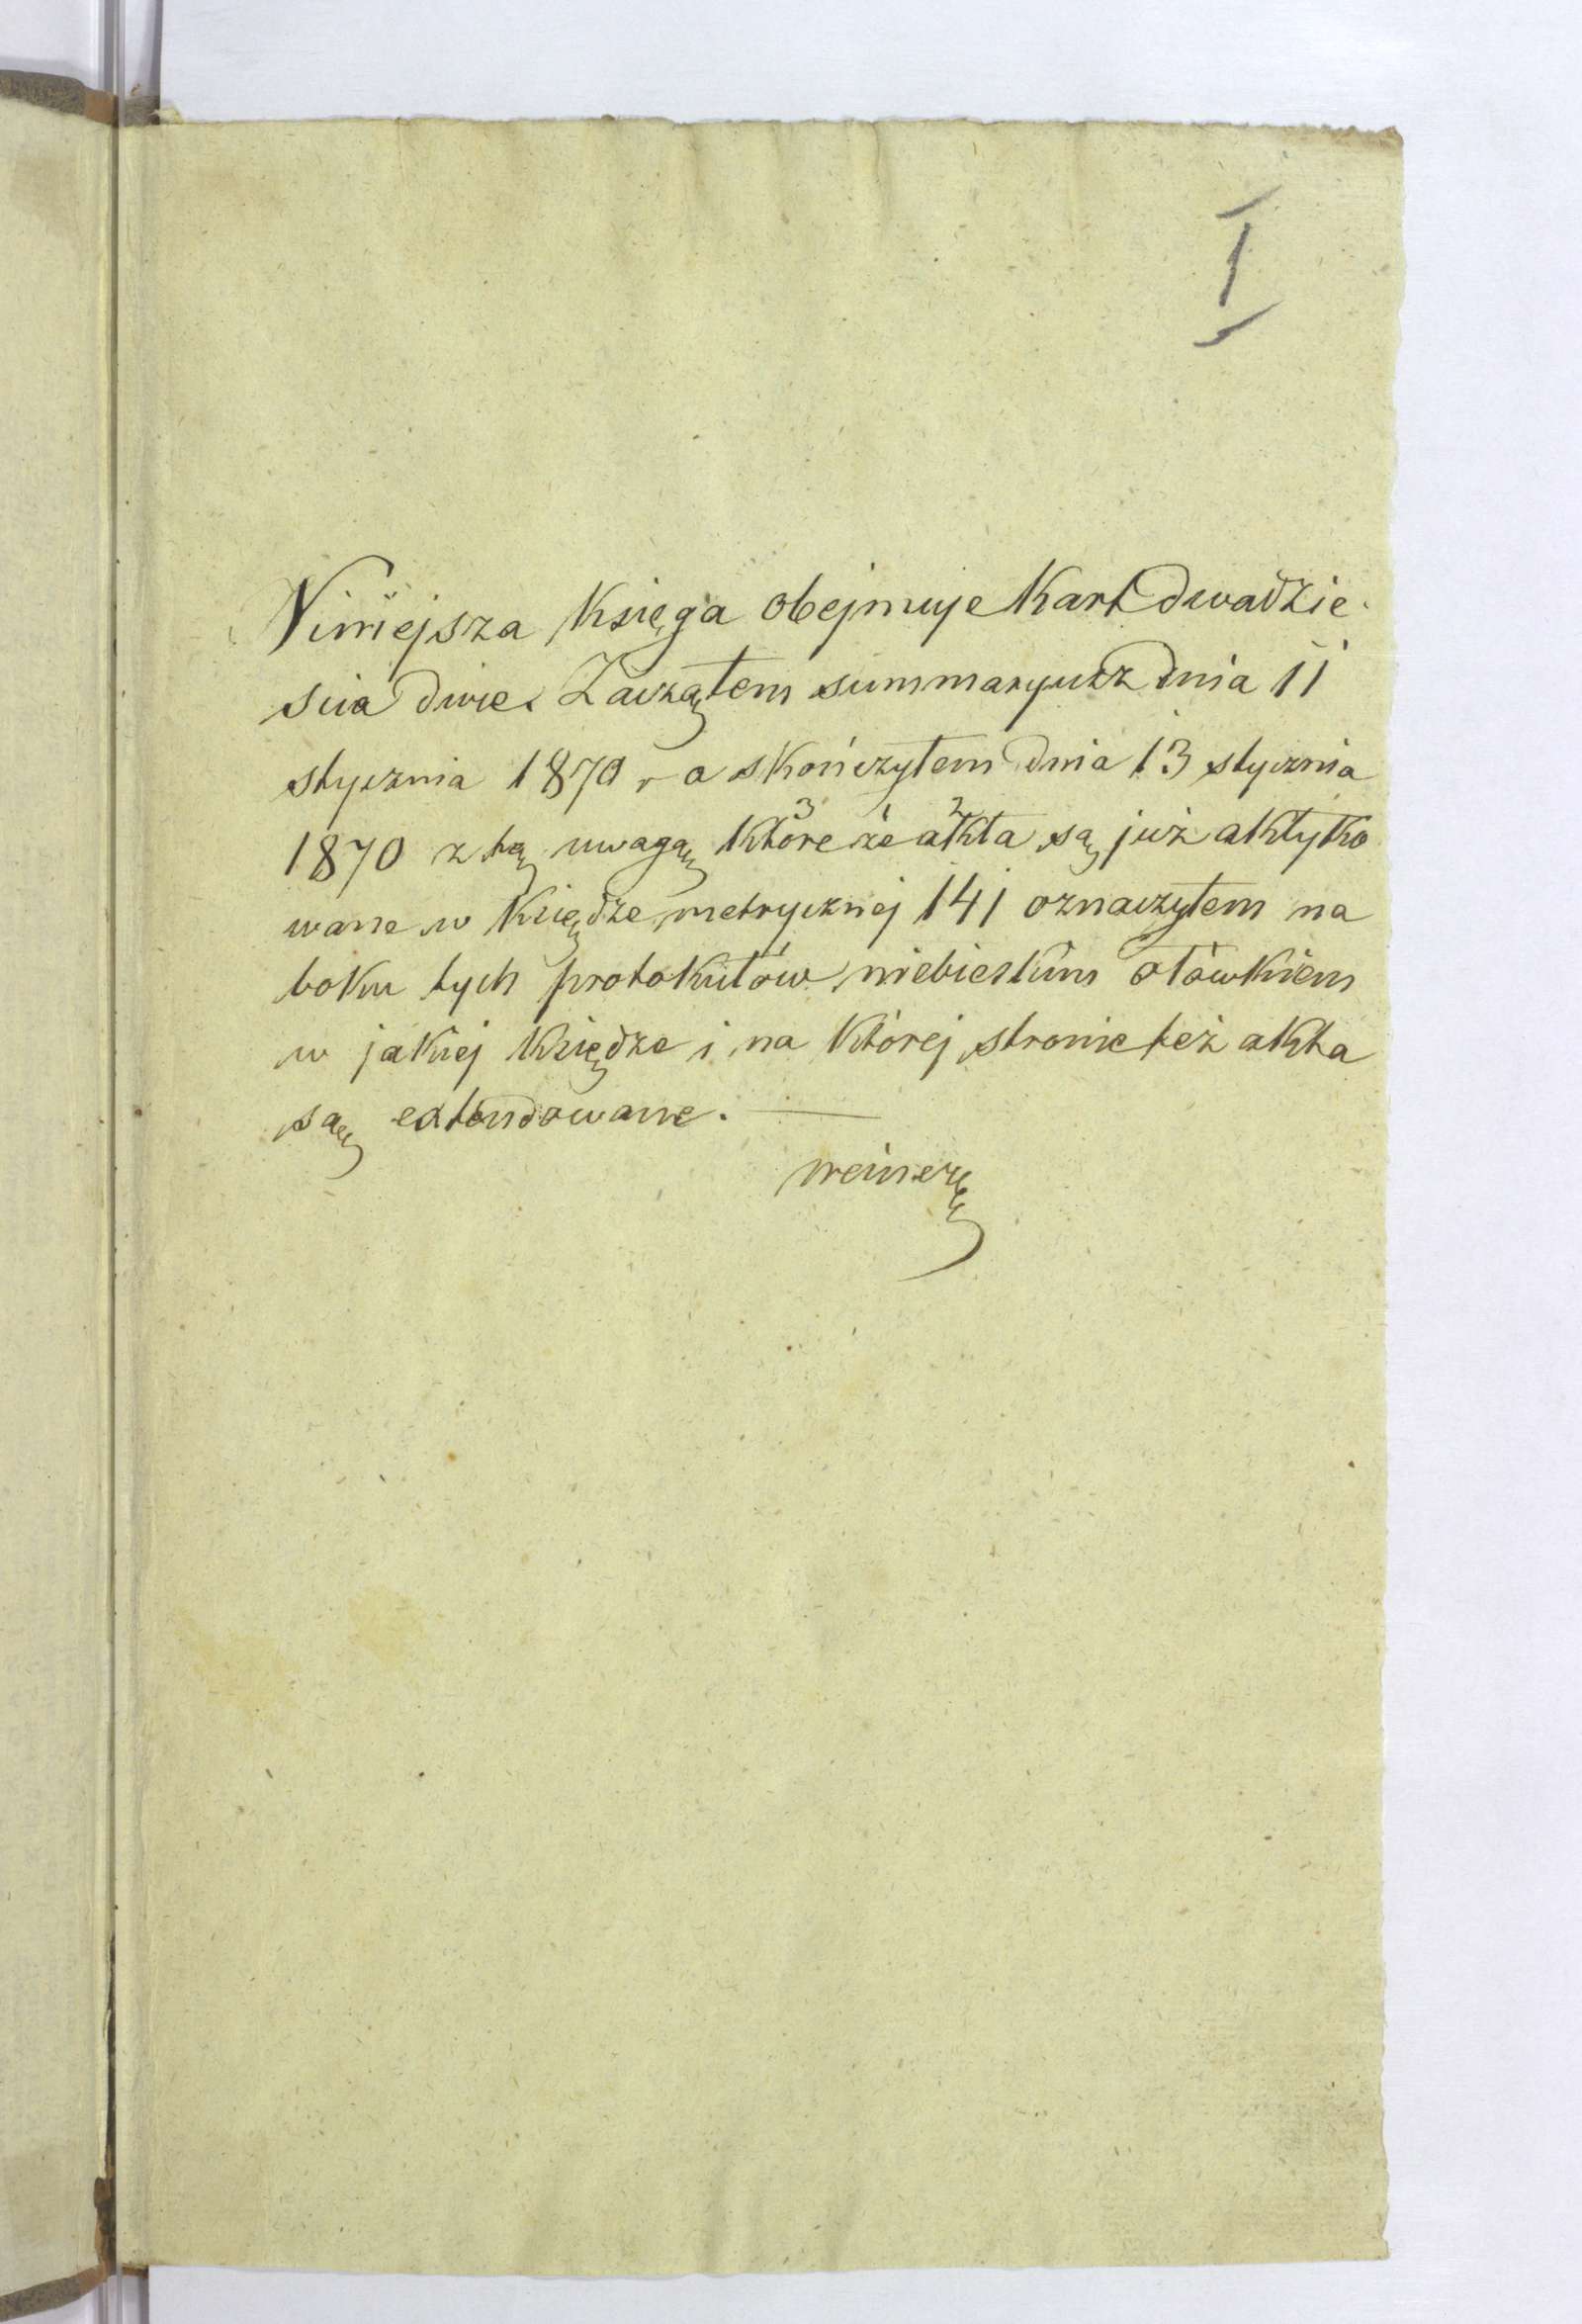 I
Niniejsza Księga obejmuje Kart dwadzie
scia dwie. Zacząłem summaryusz dnia 11
stycznia 1870 r a skończyłem dnia 13 stycznia
1870 z tą uwagą które 3 że akta 2 są już aktyko
wane w Księdze metrycznej 141 oznaczyłem na
boku tych protokułów niebieskim ołówkiem
w jakiej Księdze i na której stronie też akta
są extendowane.